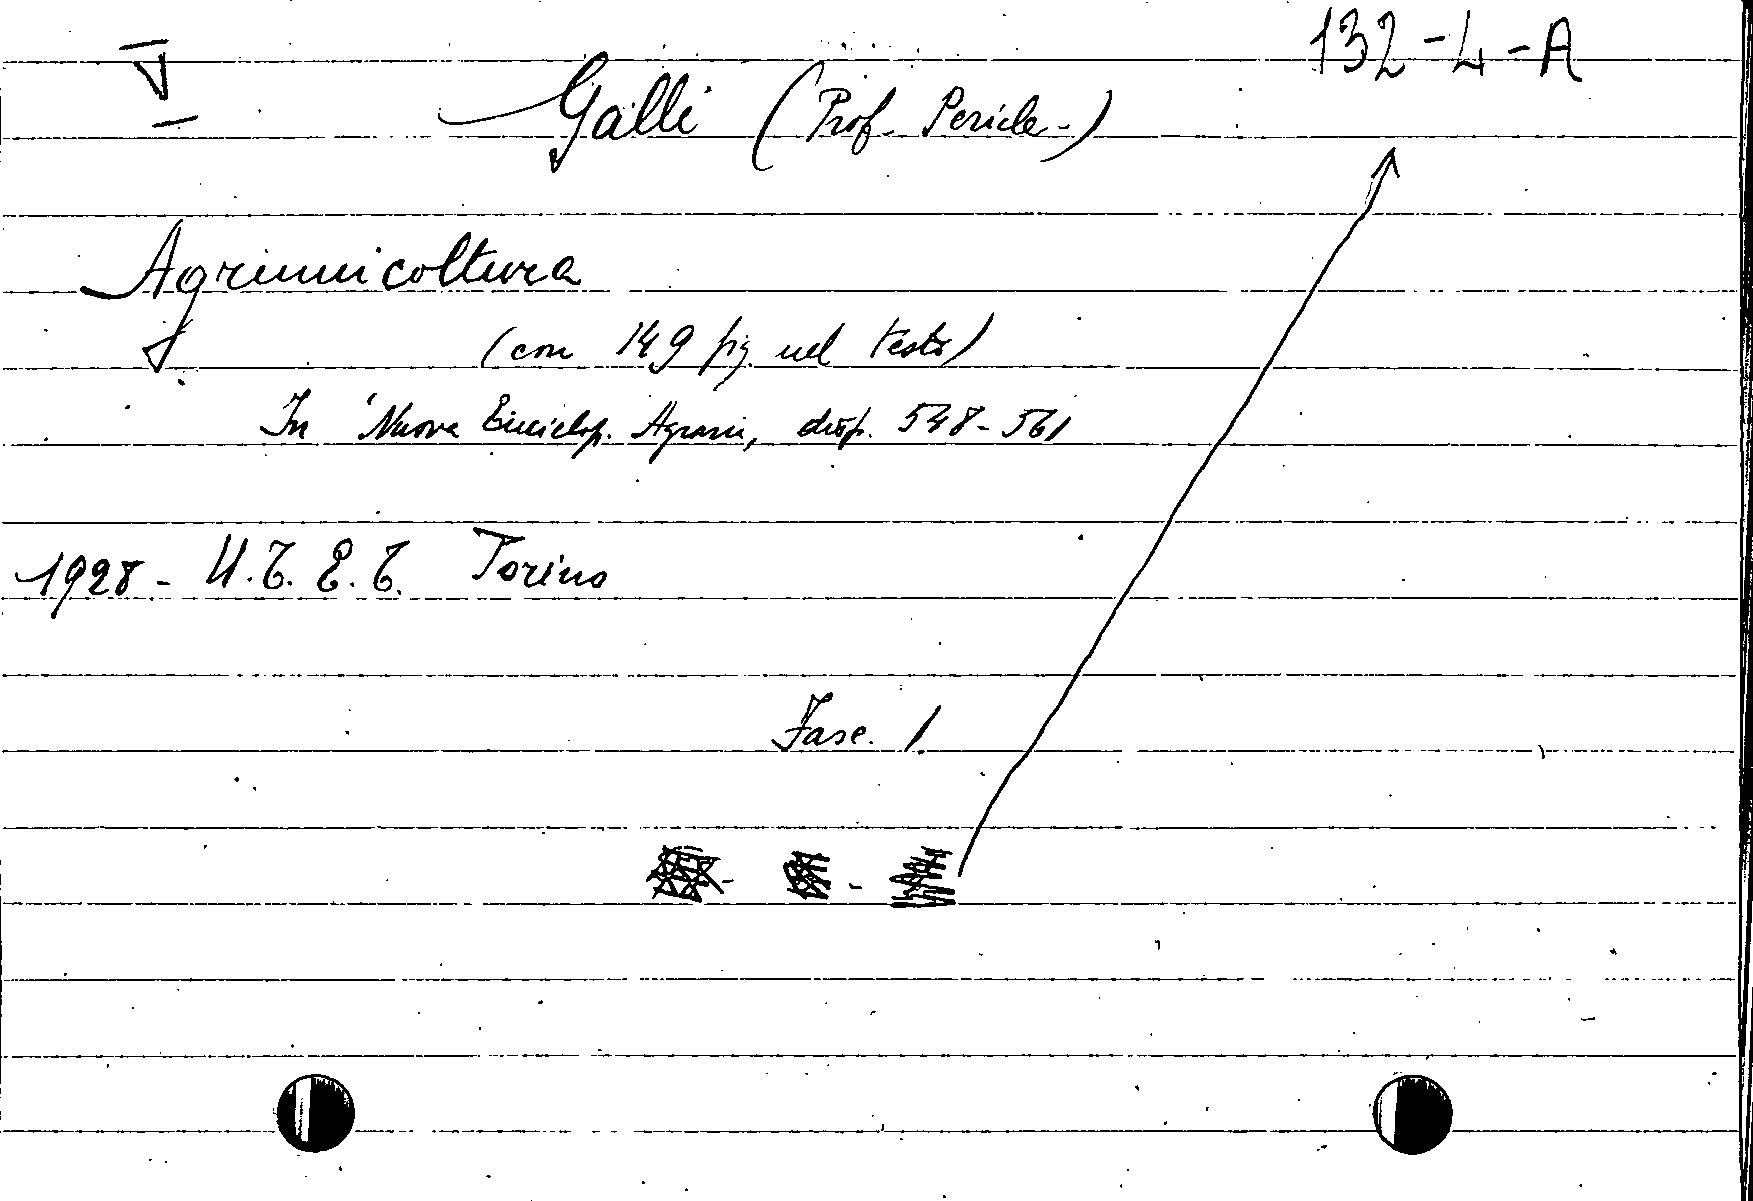 V 132-4-A
Galli (Prof. Pericle-)
Agrumicoltura
(con 149 fig. nel testo)
In Nuova Enciclop. Agraria, disp. 548-561
1928- U.T.E.T. Torino
Fasc. 1